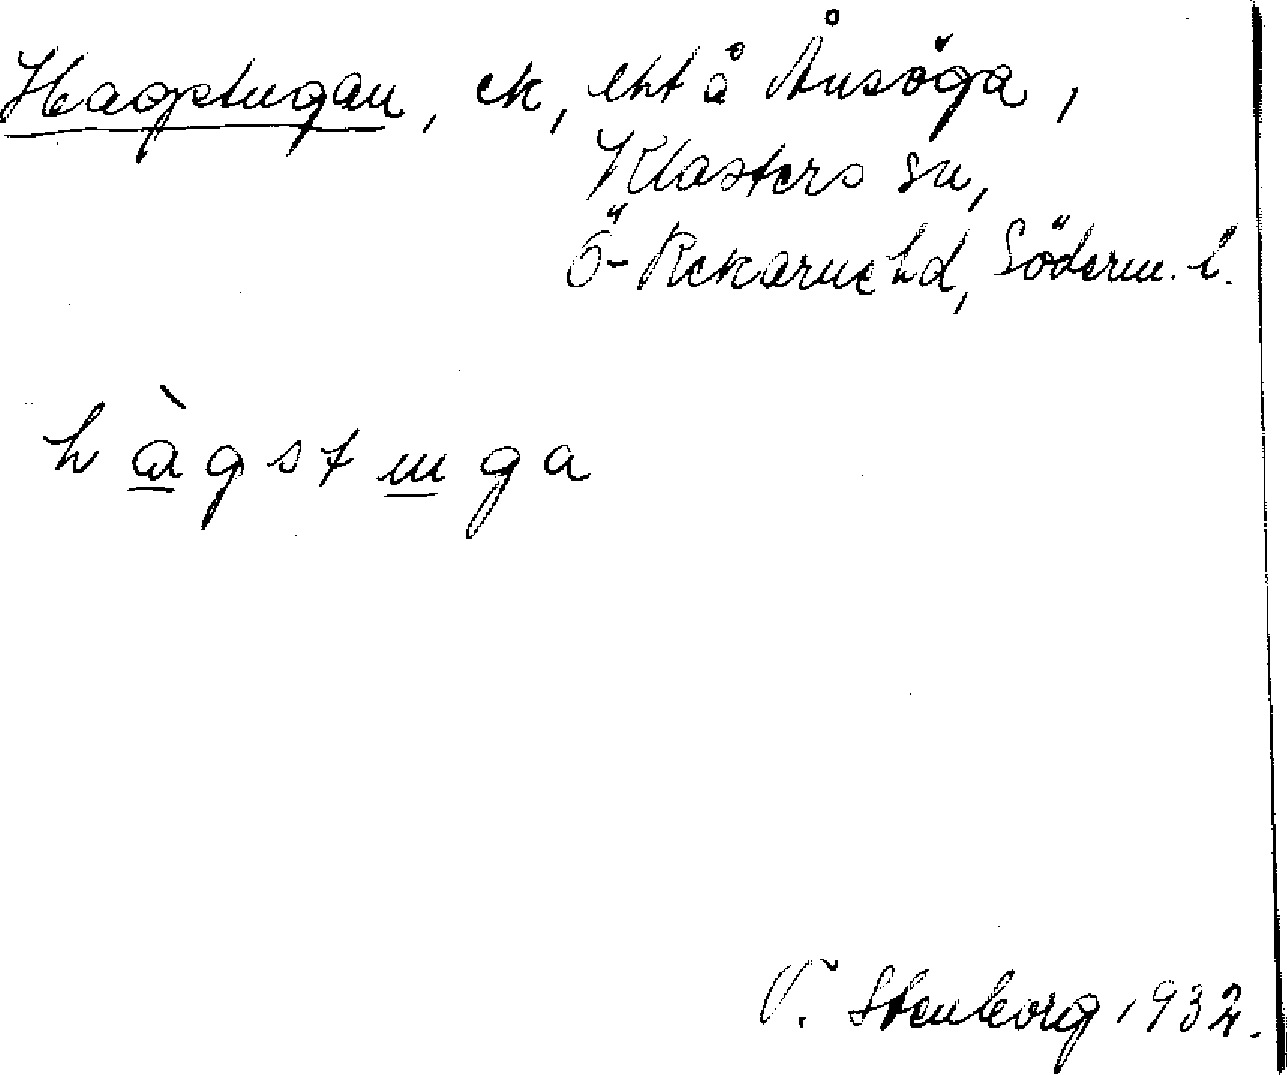 Hagstugan, ek, eht å Åusöga,
Klosters sn,
Ö-Rekarne hd, Söderm. l.
h à g s t u g a
V. Stenborg 1932.